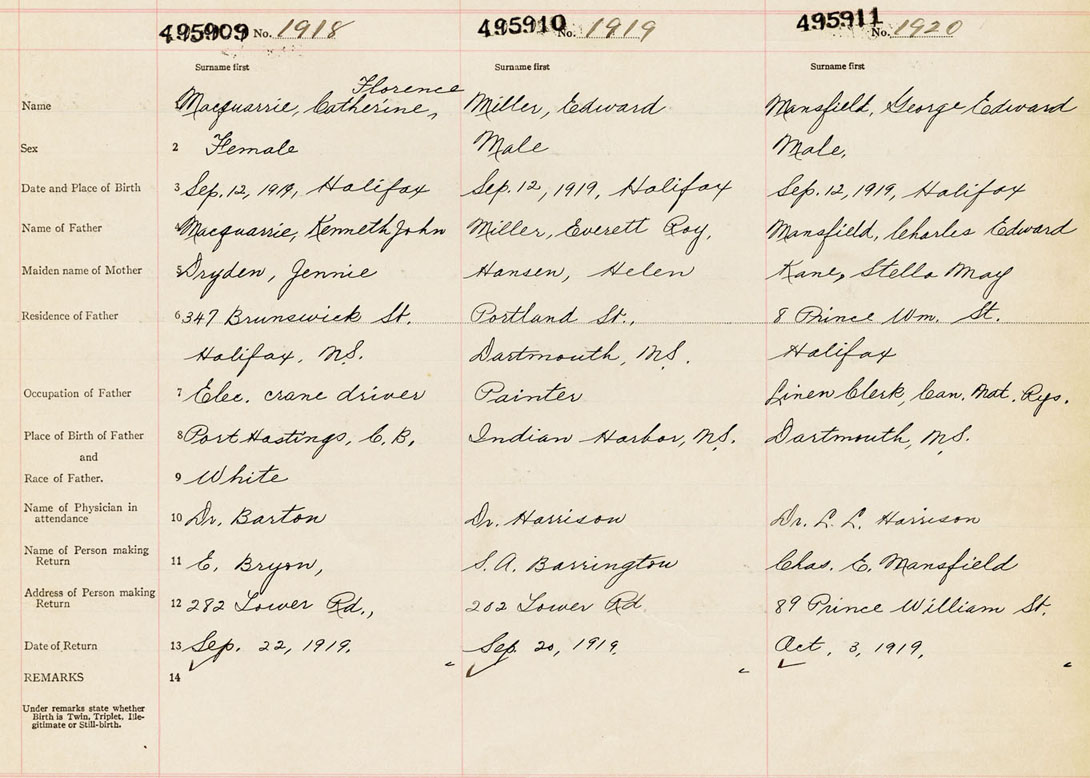 495909 No. 1918 495910 No. 1919 495911 No. 1920
Surname first Surname first Surname first
Florence
Name 1 Macquarrie, Catherine, Miller, Edward Mansfield, George Edward
Sex 2 Female Male Male,
Date and Place of Birth 3 Sep. 12, 1919, Halifax Sep. 12, 1919, Halifax Sep. 12, 1919, Halifax
Name of Father 4 Macquarrie, Kenneth John Miller, Everett Roy, Mansfield, Charles Edward
Maiden name of Mother 5 Dryden, Jennie Hansen, Helen Kane, Stella May
Residence of Father 6 347 Brunswick St. Portland St., 8 Prince Wm. St.
Halifax, N.S. Dartmouth, N.S. Halifax
Occupation of Father 7 Elec. crane driver Painter Linen Clerk, Can. Nat. Rys.
Place of Birth of Father 8 Port Hastings, C.B. Indian Harbor, N.S. Dartmouth, N.S.
and
Race of Father. 9 White
Name of Physician in
attendance 10 Dr. Barton Dr. Harrison Dr. L. L. Harrison
Name of Person making
Return 11 E. Bryon, S. A. Barrington Chas. E. Mansfield
Address of Person making
Return 12 282 Lower Rd., 202 Lower Rd 89 Prince William St.
Date of Return 13 Sep. 22, 1919. Sep. 20, 1919. Oct. 3, 1919.
REMARKS 14
Under remarks state whether
Birth is Twin, Triplet, Ille-
gitimate or Still-birth.